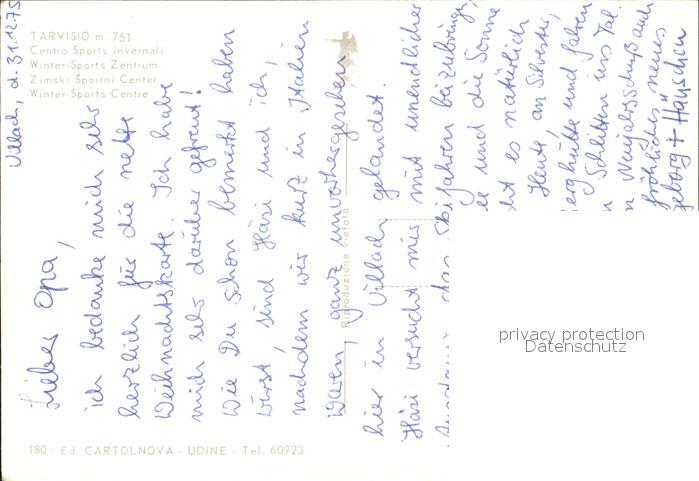 TARVISIO m. 751
Centro Sports invernali
Winter-Sports Zentrum
Zimski Športni Center
Winter-Sports Centre
Villach, d. 31.12.75
Lieber Opa,
ich bedanke mich sehr
herzlich für die nette
Weihnachtskarte. Ich habe
mich sehr darüber gefreut!
Wie Du schon bemerkt haben
wirst, sind Häsi und ich,
nachdem wir kurz in Italien
waren, ganz unvorhergesehen
hier in Villach gelandet.
Häsi versucht mir mit unendlicher
Ausdauer das Skifahren beizubringen,
e und die Sonne
ht es natürlich
Heute an Silvester
erghütte und fahren
Schlitten ins Tal.
n Neujahrsschuß auch
fröhliches neues
geborg + Häschen
Riproduzione vietata
180 - Ed. CARTOLNOVA - UDINE - Tel. 60923
privacy protection
Datenschutz